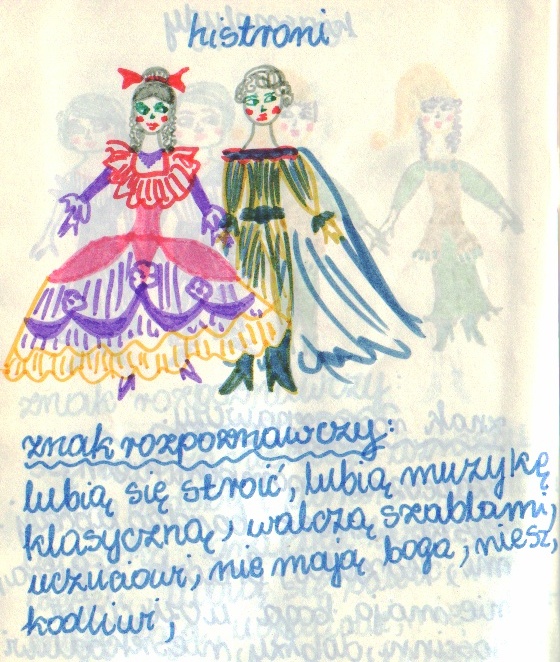 histroni
znak rozpoznawczy:
lubią się stroić, lubią muzykę
klasyczną, walczą szablami,
uczuciowi, nie mają boga, niesz,
kodliwi,